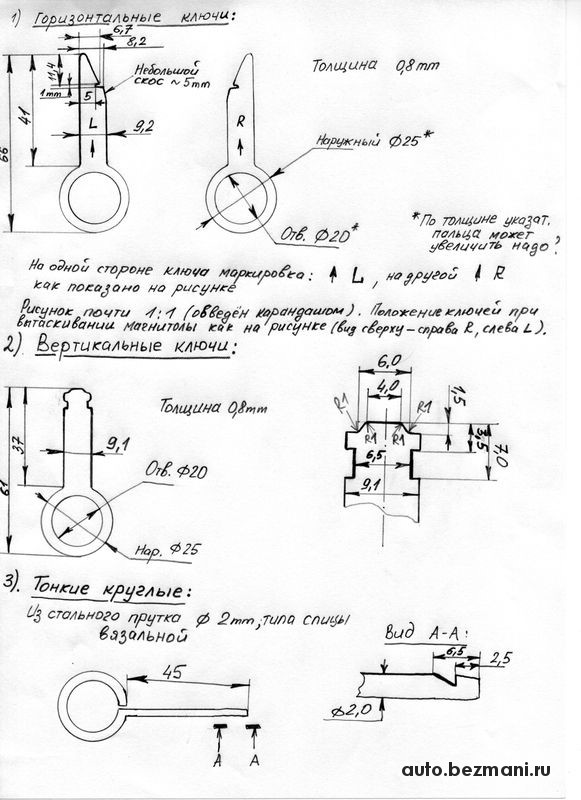 1) Горизонтальные ключи:
6,7
8,2
11,4
1mm
5
Небольшой
скос ~5mm
Толщина 0,8mm
41
66
L
R
9,2
Наружный Ф25*
Отв. Ф20*
*По толщине указат.
пальца может
увеличить надо?
На одной стороне ключа маркировка: L, на другой R
как показано на рисунке
Рисунок почти 1:1 (обведён карандашом). Положение ключей при
вытаскивании магнитолы как на рисунке (вид сверху – справа R, слева L).
2) Вертикальные ключи:
Толщина 0,8mm
37
61
9,1
Отв. Ф20
Нар. Ф25
6,0
4,0
1,5
R1
R1
R1
R1
3,5
7,0
6,5
9,1
3). Тонкие круглые:
Из стального прутка Ф 2mm, типа спицы
вязальной
45
А А
Вид А-А:
6,5
2,5
Ф2,0
auto.bezmani.ru